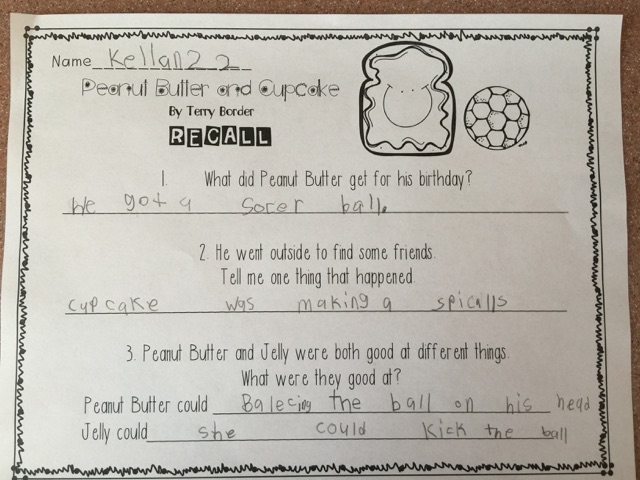 Name Kellan 2 2
Peanut Butter and Cupcake
By Terry Border
RECALL
1. What did Peanut Butter get for his birthday?
He got a sorer ball.
2. He went outside to find some friends.
Tell me one thing that happened.
cupcake was making a spicalls
3. Peanut Butter and Jelly were both good at different things.
What were they good at?
Peanut Butter could Balecing the ball on his head
Jelly could she could kick the ball